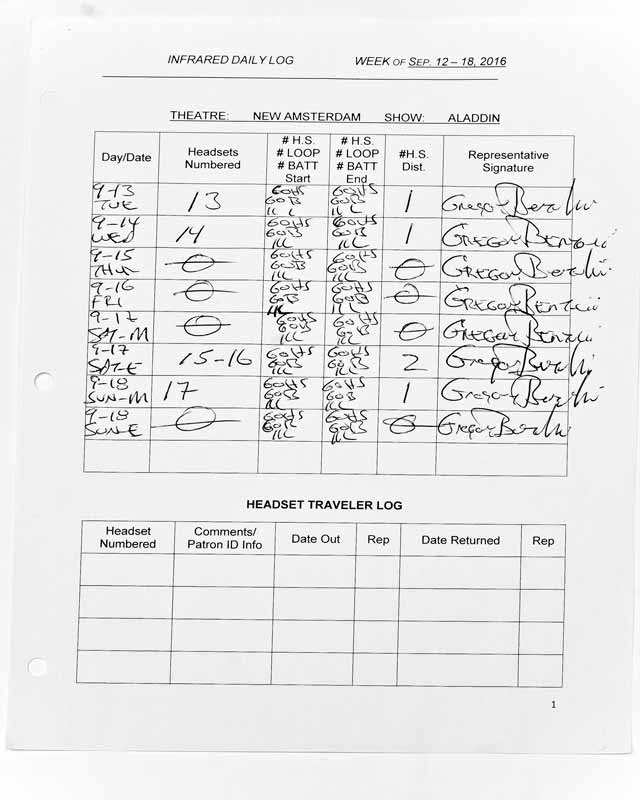 INFRARED DAILY LOG WEEK OF SEP. 12 – 18, 2016
THEATRE: NEW AMSTERDAM SHOW: ALADDIN
Day/Date Headsets Numbered # H.S. # LOOP # BATT Start # H.S. # LOOP # BATT End #H.S. Dist. Representative Signature
9-13 TUE 13 60HS 60B 1LL 60HS 60B 1LL 1 Gregory
9-14 WED 14 60HS 60B 1LL 60HS 60B 1LL 1 GREGORY
9-15 THU 0 60HS 60B 1LL 60HS 60B 1LL 0 GREGORY
9-16 FRI 0 60HS 60B 60HS 60B 1LL 0 GREGORY
9-17 SAT-M 0 60HS 60B 1LL 60HS 60B 1LL 0 GREGORY
9-17 SAT-E 15-16 60HS 60B 1LL 60HS 60B 1LL 2 Gregory
9-18 SUN-M 17 60HS 60B 1LL 60HS 60B 1LL 1 Gregory
9-18 SUN-E 0 60HS 60B 1LL 60HS 60B 1LL 0 Gregory
HEADSET TRAVELER LOG
Headset Numbered Comments/ Patron ID Info Date Out Rep Date Returned Rep
1